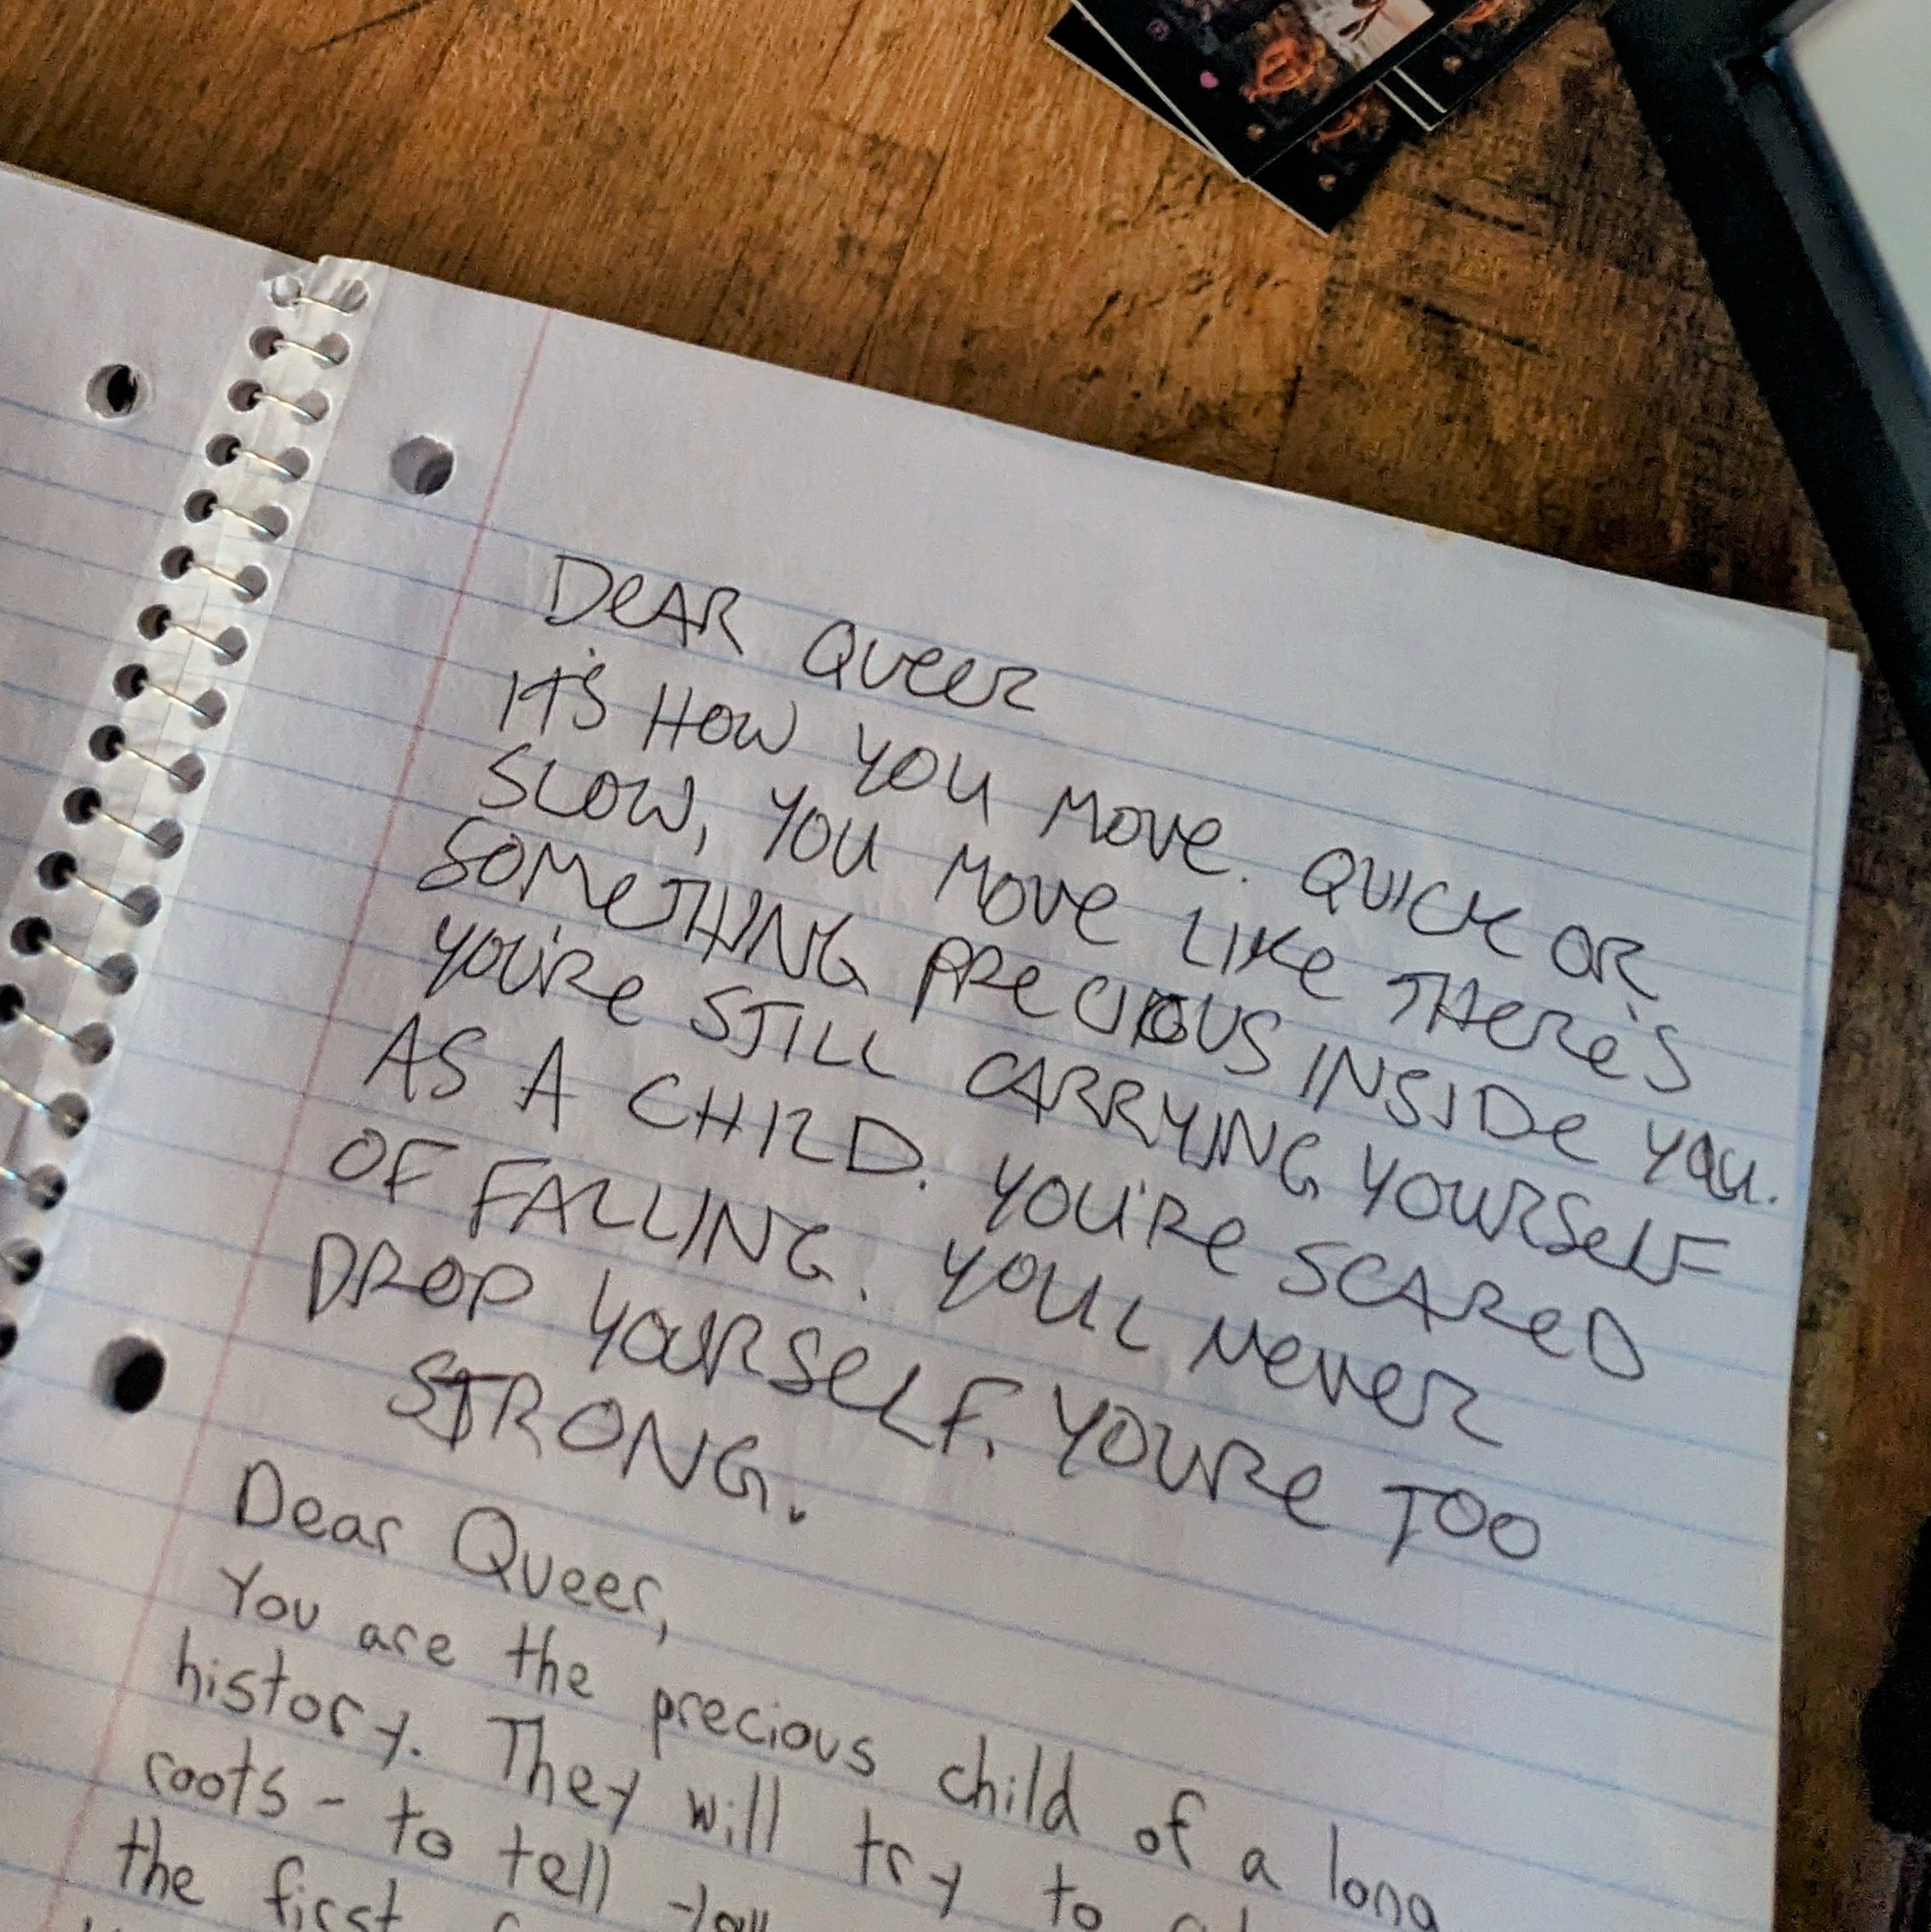 DeAR Queer
IT'S HOW YOU MOVe. QUICK OR
SLOW, YOU MOVe LIKe THeRe'S
SOMeTHING PReCIOUS INSIDe YOU.
YOU'Re STILL CARRYING YOURSeLF
AS A CHILD. YOU'Re SCAReD
OF FALLING. YOULL NeVeR
DROP YOURSeLF. YOURe TOO
STRONG.
Dear Queer,
You are the precious child of a long
history. They will try to
roots - to tell you
the first